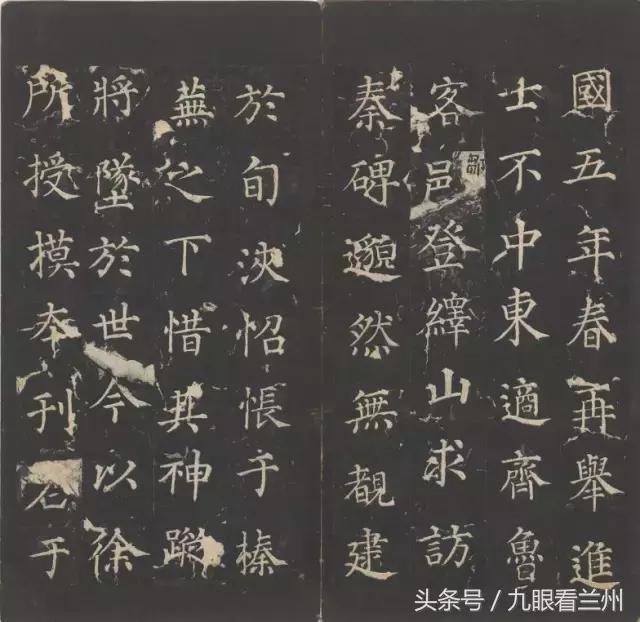 國五年春再舉進
士不中東適齊魯
客邑登繹山求訪
秦碑邈然無覩建
於旬浹怊悵于榛
蕪之下惜其神蹤
將墜於世今以徐
所授摸夲刊石于
头条号／九眼看兰州